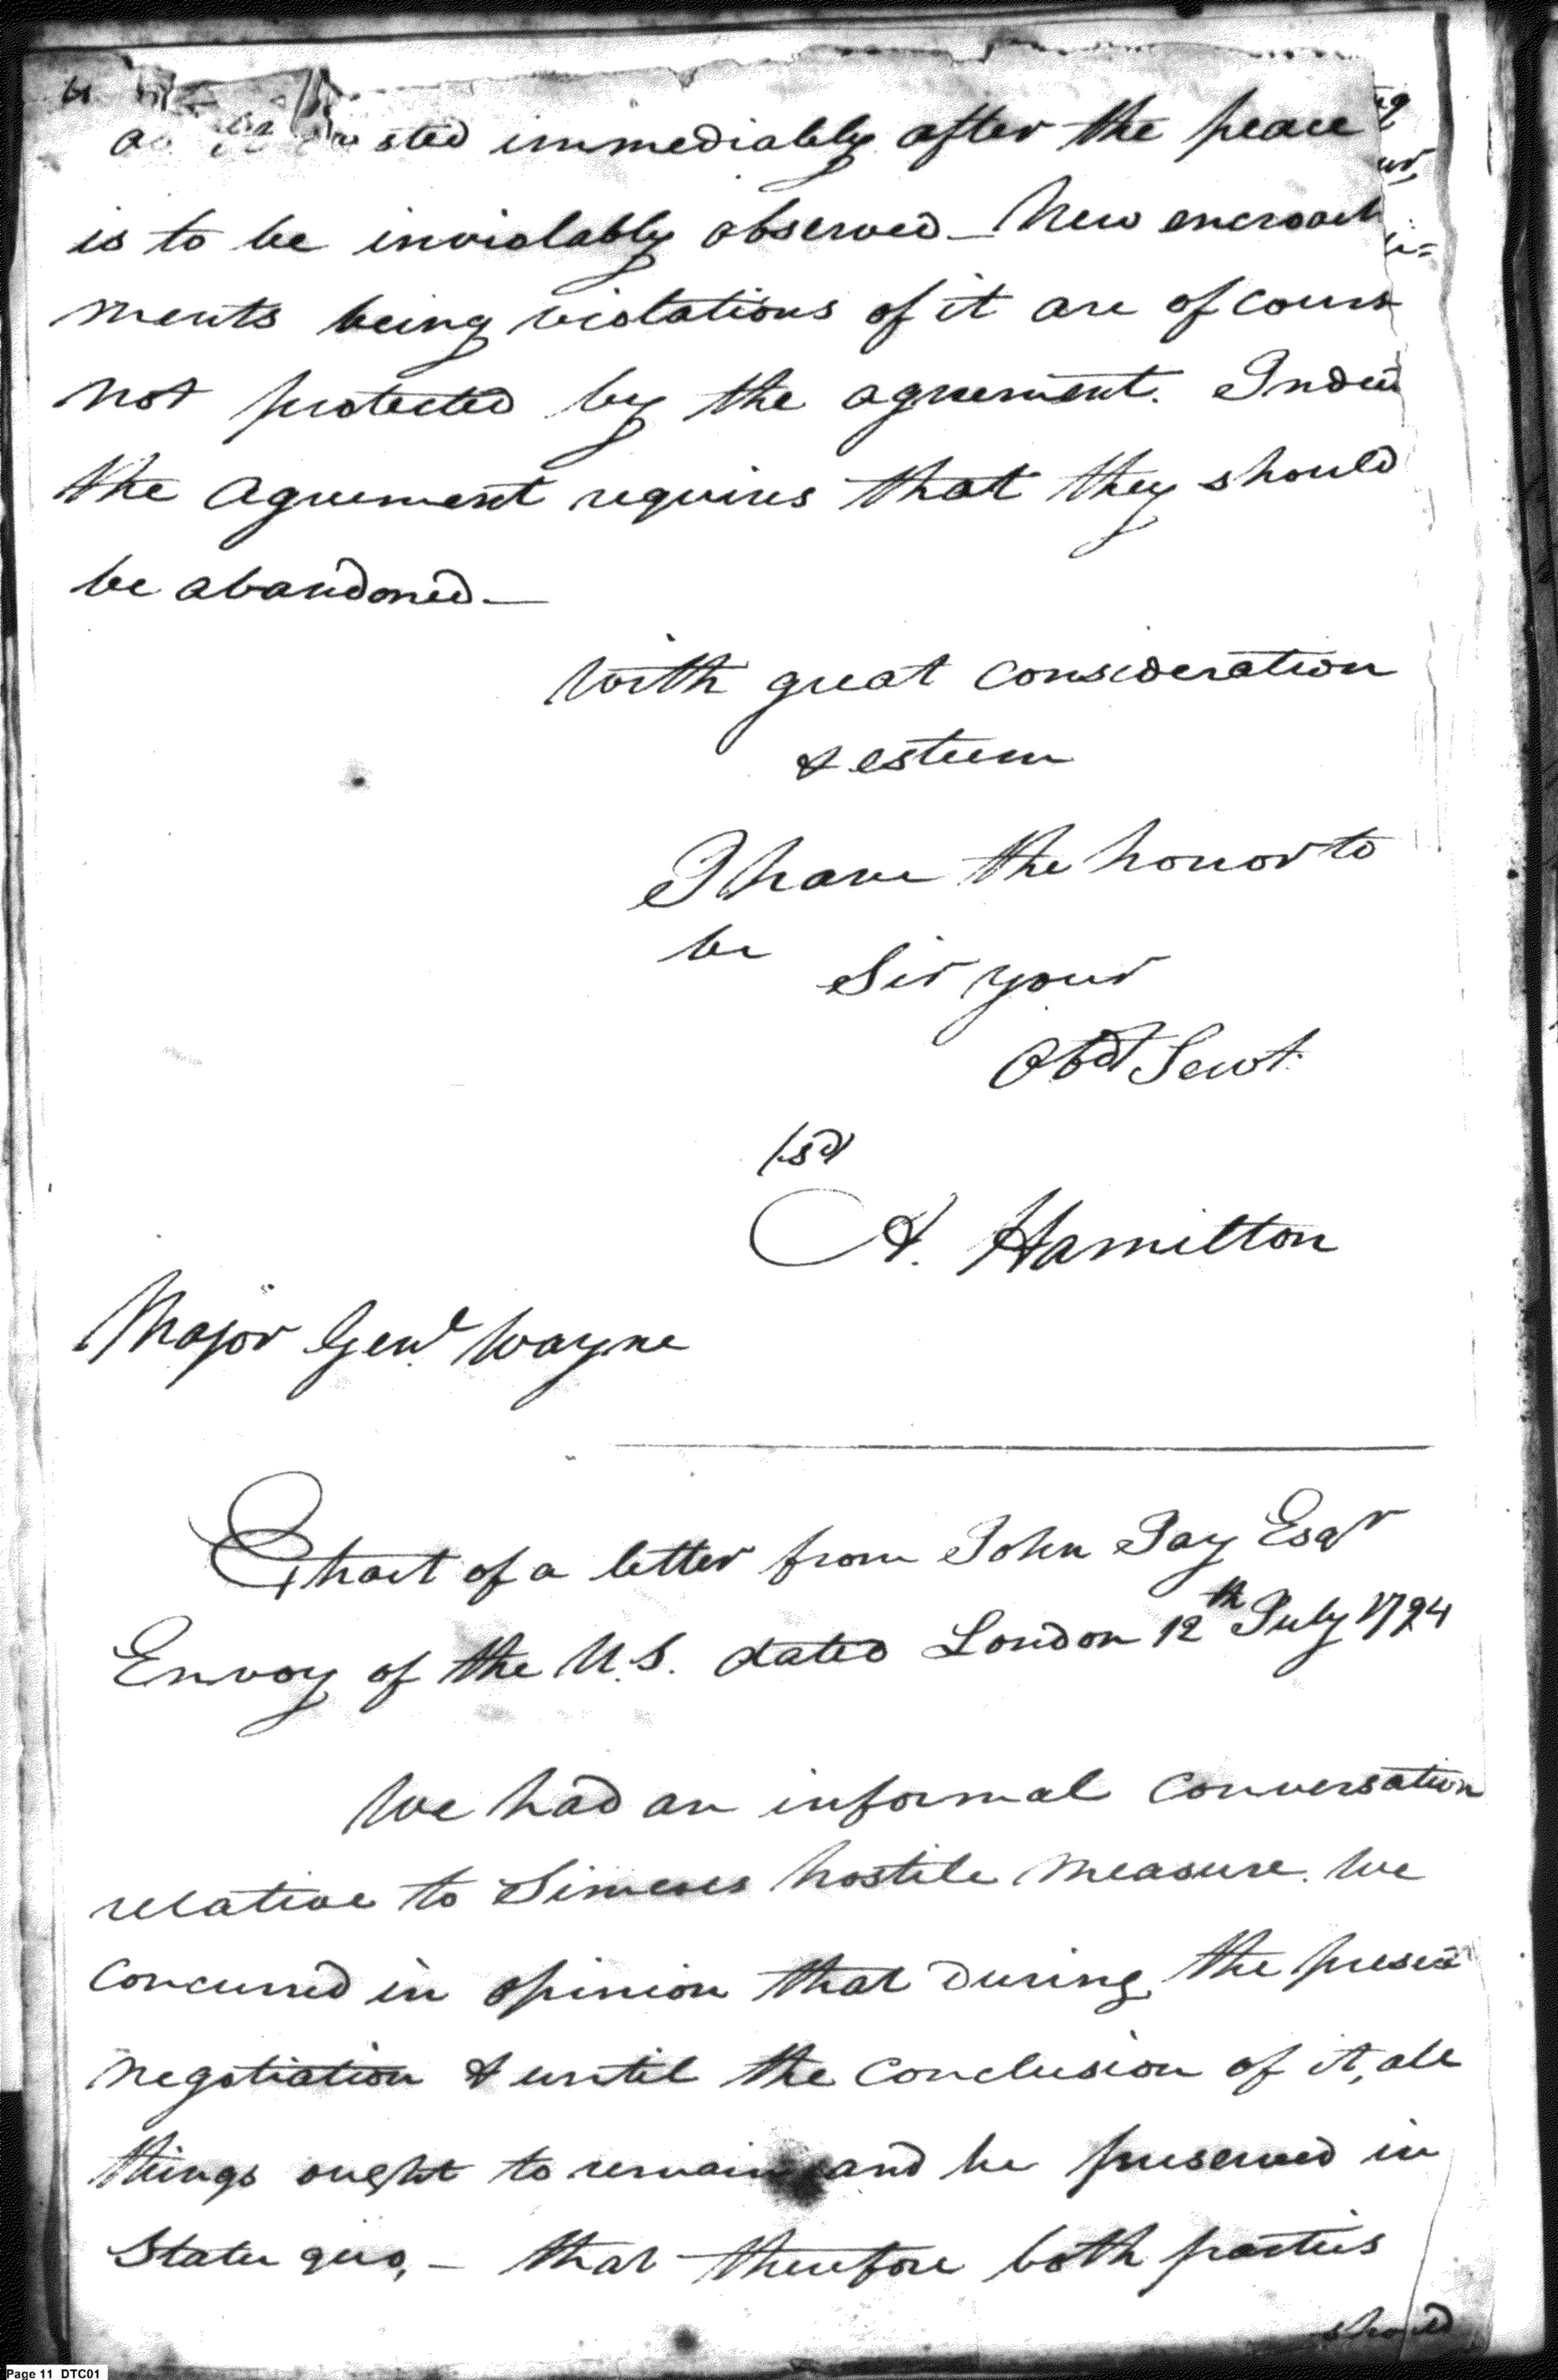 immediately after the peace
is to be inviolably observed _ New encroach
ments being violations of it are of cours
not protected by the agreement. Indee
the agreement requires that they should
be abandoned _
With great consideration
& esteem
I have the honor to
be
Sir your
Obdt Servt.
/sd/
A. Hamilton
Major Genl Wayne
Extract of a letter from John Jay Esqr
Envoy of the U.S. dated London 12th July 1794
We had an informal conversation
relative to hostile measure. We
concurred in opinion that during the present
negotiation & until the conclusion of it, all
things ought to remain and be preserved in
Statu quo, _ that therefore both parties
should
Page 11 DTC01